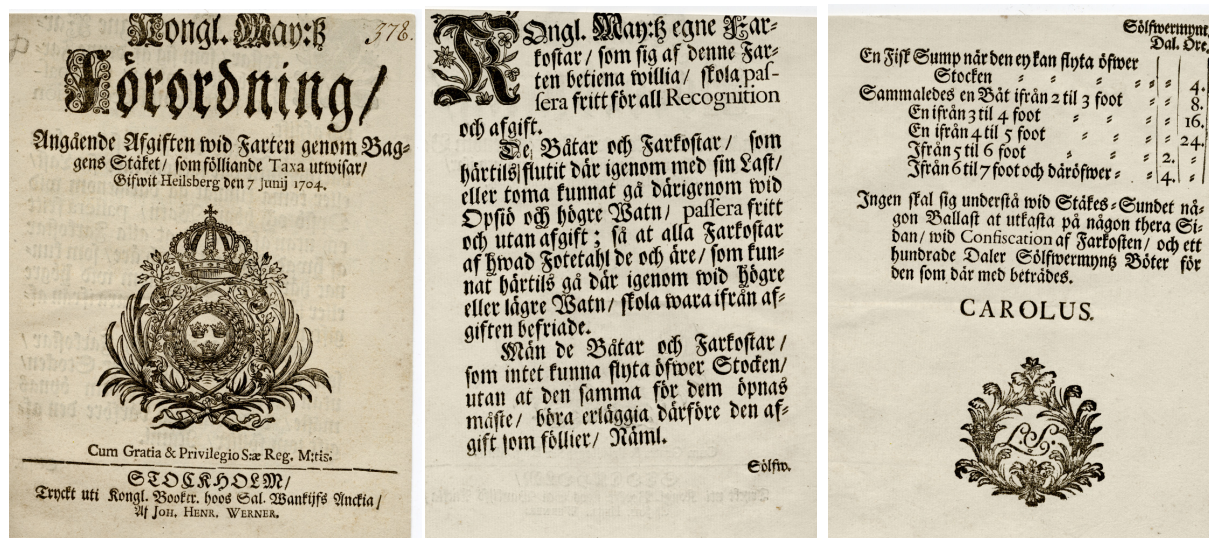 Kongl. May:tz
378.
Förordning/
Angående Afgiften wid Farten genom Bag-
gens Stäket/ som fölliande Taxa utwisar/
Gifwit Heilsberg den 7 Junij 1704.
Cum Gratia & Privilegio Sæ Reg. M:tis.
STOCKHOLM/
Tryckt uti Kongl. Booktr. hoos Sal. Wankijfs Änckia/
Af JOH. HENR. WERNER.
KOngl. May:tz egne Far-
kostar/ som sig af denne Far-
ten betiena willia/ skola pas-
sera fritt för all Recognition
och afgift.
De Båtar och Farkostar/ som
härtils flutit där igenom med sin Last/
eller toma kunnat gå därigenom wid
Opsiö och högre Watn/ passera fritt
och utan afgift; så at alla Farkostar
af hwad Fotetahl de och äre/ som kun-
nat härtils gå där igenom wid högre
eller lägre Watn/ skola wara ifrån af-
giften befriade.
Män de Båtar och Farkostar/
som intet kunna flyta öfwer Stocken/
utan at den samma för dem öpnas
måste/ böra erläggia därföre den af-
gift som föllier/ Näml.
Sölfw.
Sölfwermynt.
Dal. Öre.
En Fisk Sump när den ey kan flyta öfwer
Stocken = = = = = = 4.
Sammaledes en Båt ifrån 2 til 3 foot = = 8.
En ifrån 3 til 4 foot = = = = 16.
En ifrån 4 til 5 foot = = = = 24.
Ifrån 5 til 6 foot = = = 2. =
Ifrån 6 til 7 foot och däröfwer = = 4. =
Ingen skal sig understå wid Stäkes-Sundet nå-
gon Ballast at utkasta på någon thera Si-
dan/ wid Confiscation af Farkosten/ och ett
hundrade Daler Sölfwermyntz Böter för
den som där med beträdes.
CAROLUS.
L.S.